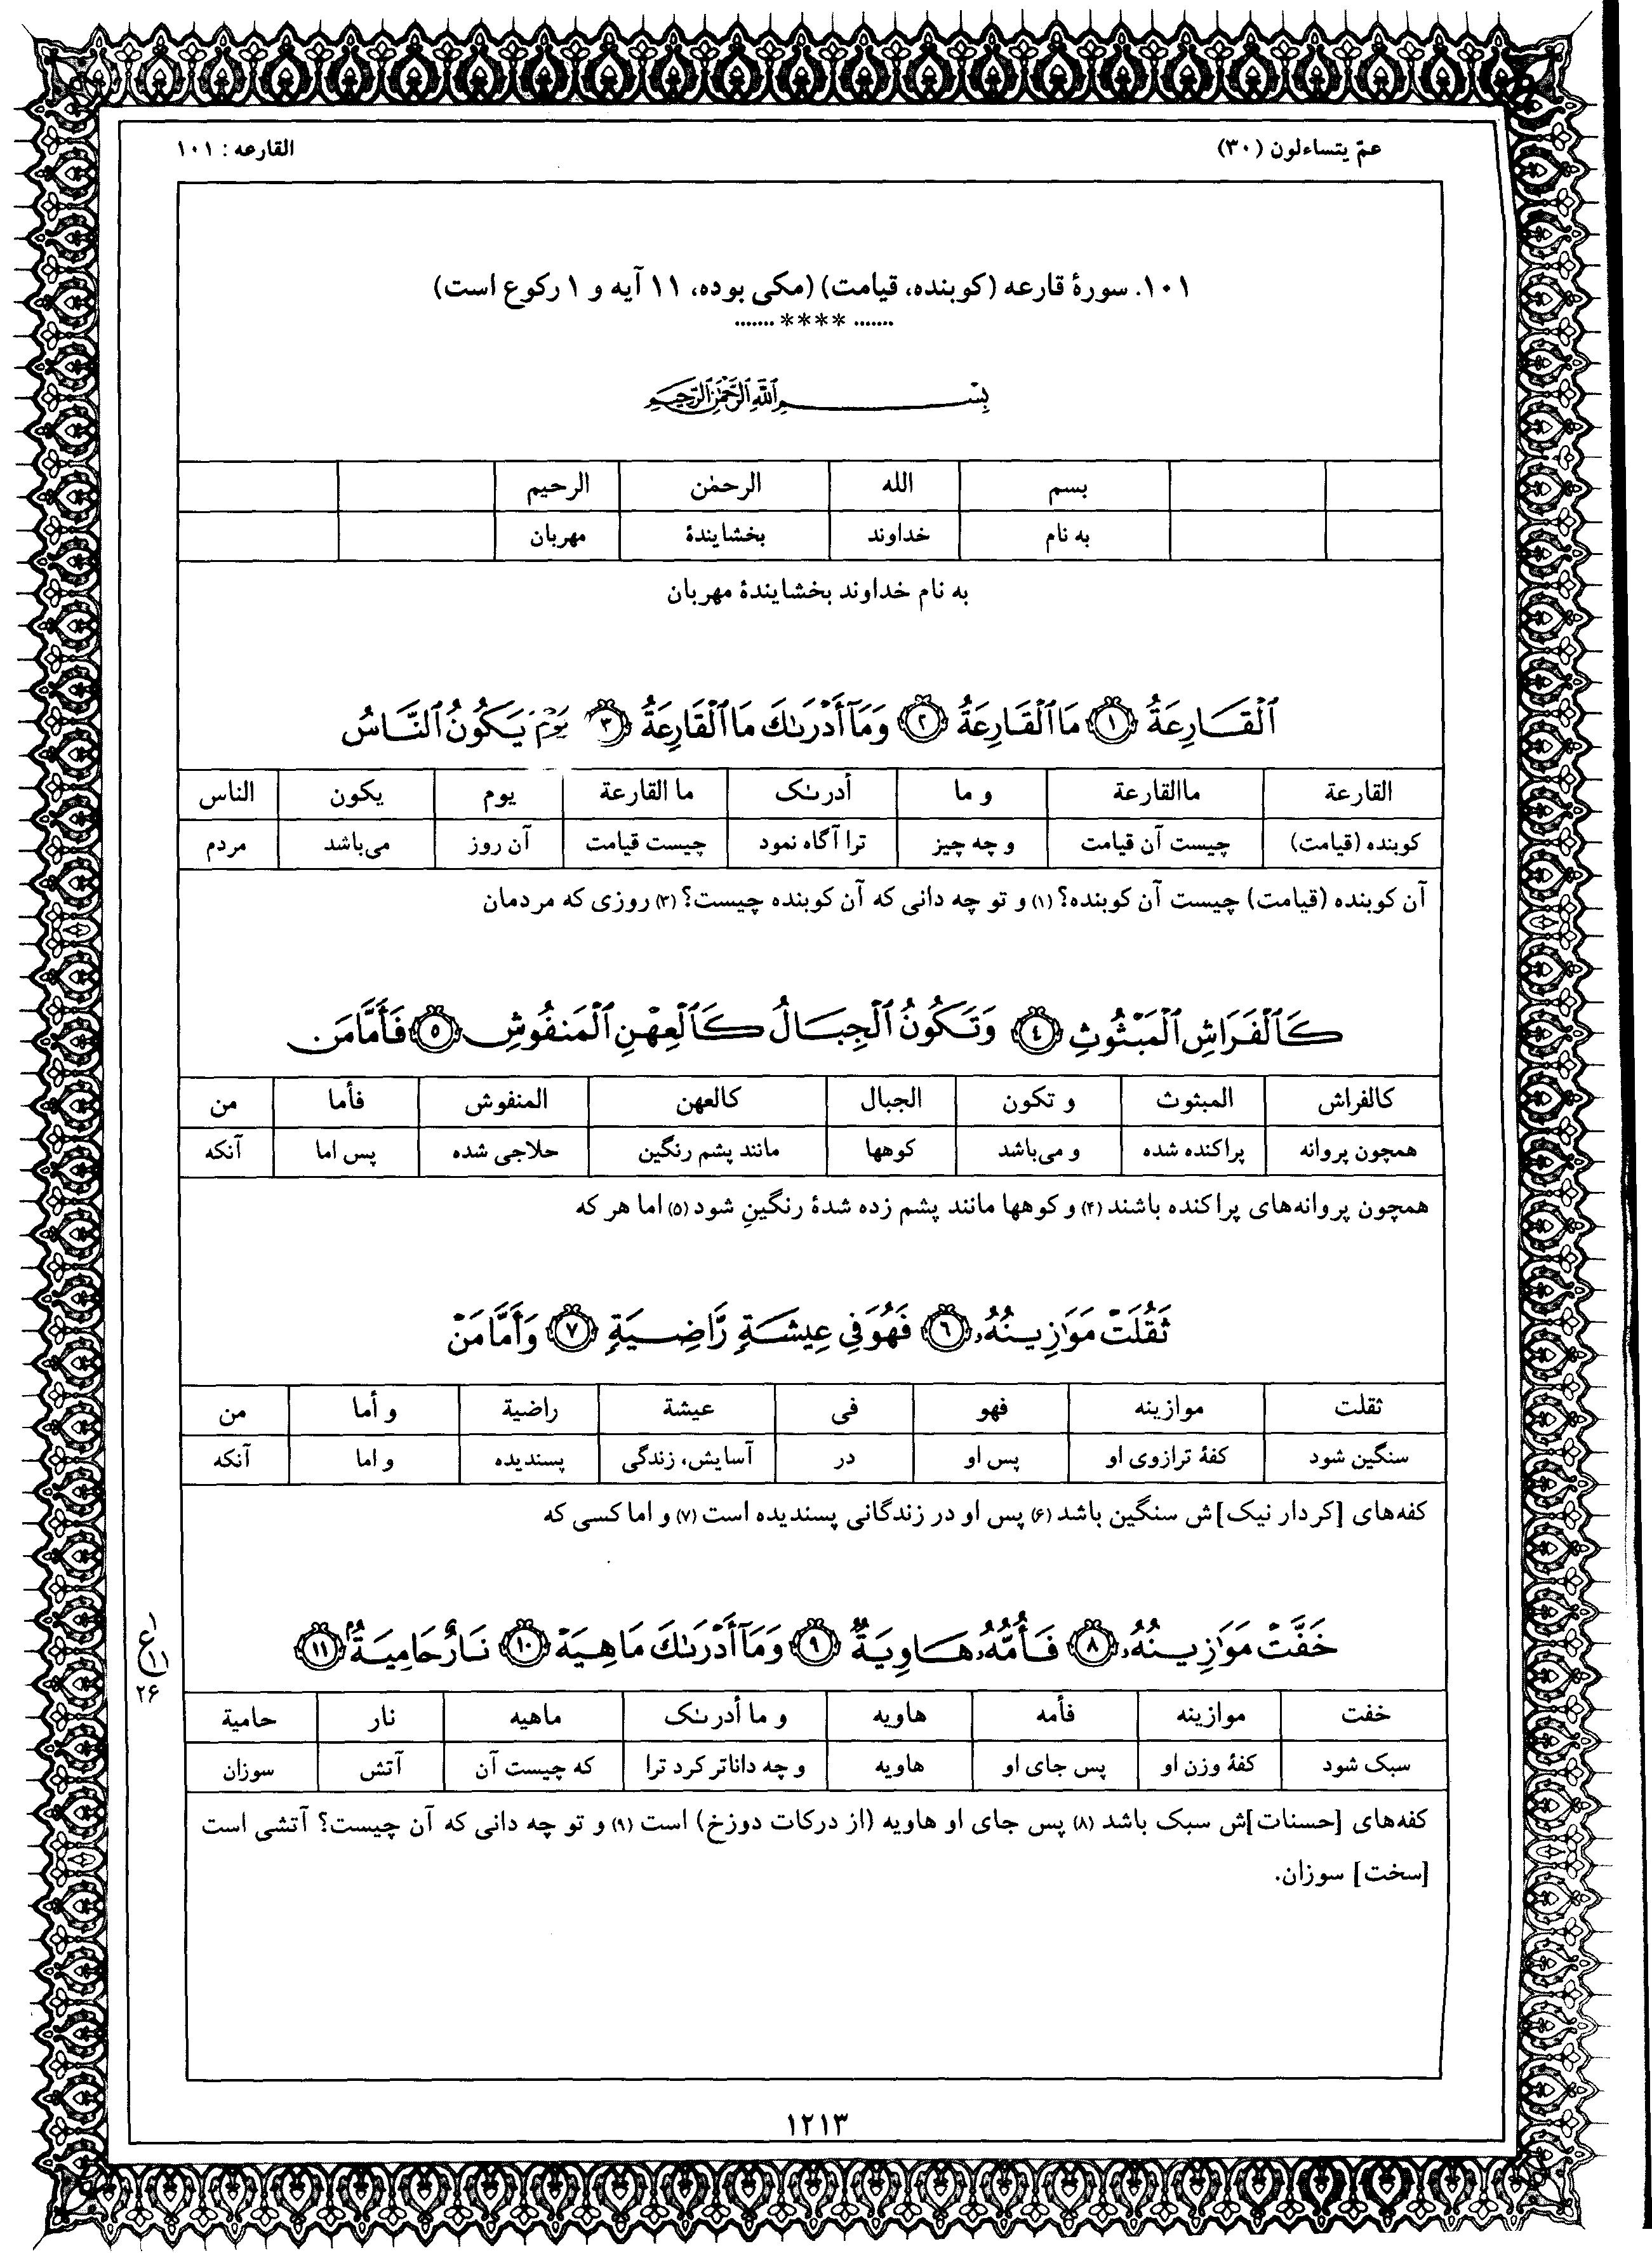 عمّ یتساءلون (۳۰)
القارعه : ۱۰۱
۱۰۱. سورهٔ قارعه (کوبنده، قیامت) (مکی بوده، ۱۱ آیه و ۱ رکوع است)
....... **** .......
بِسْمِ ٱللَّهِ ٱلرَّحْمَٰنِ ٱلرَّحِيمِ
بسم الله الرحمٰن الرحیم
به نام خداوند بخشایندهٔ مهربان
به نام خداوند بخشایندهٔ مهربان
ٱلْقَارِعَةُ ۝١ مَا ٱلْقَارِعَةُ ۝٢ وَمَآ أَدْرَىٰكَ مَا ٱلْقَارِعَةُ ۝٣ يَوْمَ يَكُونُ ٱلنَّاسُ
القارعة ماالقارعة و ما أدرىٰک ما القارعة یوم یکون الناس
کوبنده (قیامت) چیست آن قیامت و چه چیز ترا آگاه نمود چیست قیامت آن روز می‌باشد مردم
آن کوبنده (قیامت) چیست آن کوبنده؟ (۱) و تو چه دانی که آن کوبنده چیست؟ (۳) روزی که مردمان
كَٱلْفَرَاشِ ٱلْمَبْثُوثِ ۝٤ وَتَكُونُ ٱلْجِبَالُ كَٱلْعِهْنِ ٱلْمَنفُوشِ ۝٥ فَأَمَّا مَن
کالفراش المبثوث و تکون الجبال کالعهن المنفوش فأما من
همچون پروانه پراکنده شده و می‌باشد کوهها مانند پشم رنگین حلاجی شده پس اما آنکه
همچون پروانه‌های پراکنده باشند (۴) و کوهها مانند پشم زده شدهٔ رنگینِ شود (۵) اما هر که
ثَقُلَتْ مَوَٰزِينُهُۥ ۝٦ فَهُوَ فِى عِيشَةٍ رَّاضِيَةٍ ۝٧ وَأَمَّا مَنْ
ثقلت موازینه فهو فی عیشة راضیة و أما من
سنگین شود کفهٔ ترازوی او پس او در آسایش، زندگی پسندیده و اما آنکه
کفه‌های [کردار نیک]ش سنگین باشد (۶) پس او در زندگانی پسندیده است (۷) و اما کسی که
خَفَّتْ مَوَٰزِينُهُۥ ۝٨ فَأُمُّهُۥ هَاوِيَةٌ ۝٩ وَمَآ أَدْرَىٰكَ مَا هِيَهْ ۝١٠ نَارٌ حَامِيَةٌۢ ۝١١
ع
۱
۱۱
۲۶
خفت موازینه فأمه هاویه و ما أدرىٰک ماهیه نار حامیة
سبک شود کفهٔ وزن او پس جای او هاویه و چه داناتر کرد ترا که چیست آن آتش سوزان
کفه‌های [حسنات]ش سبک باشد (۸) پس جای او هاویه (از درکات دوزخ) است (۹) و تو چه دانی که آن چیست؟ آتشی است
[سخت] سوزان.
۱۲۱۳